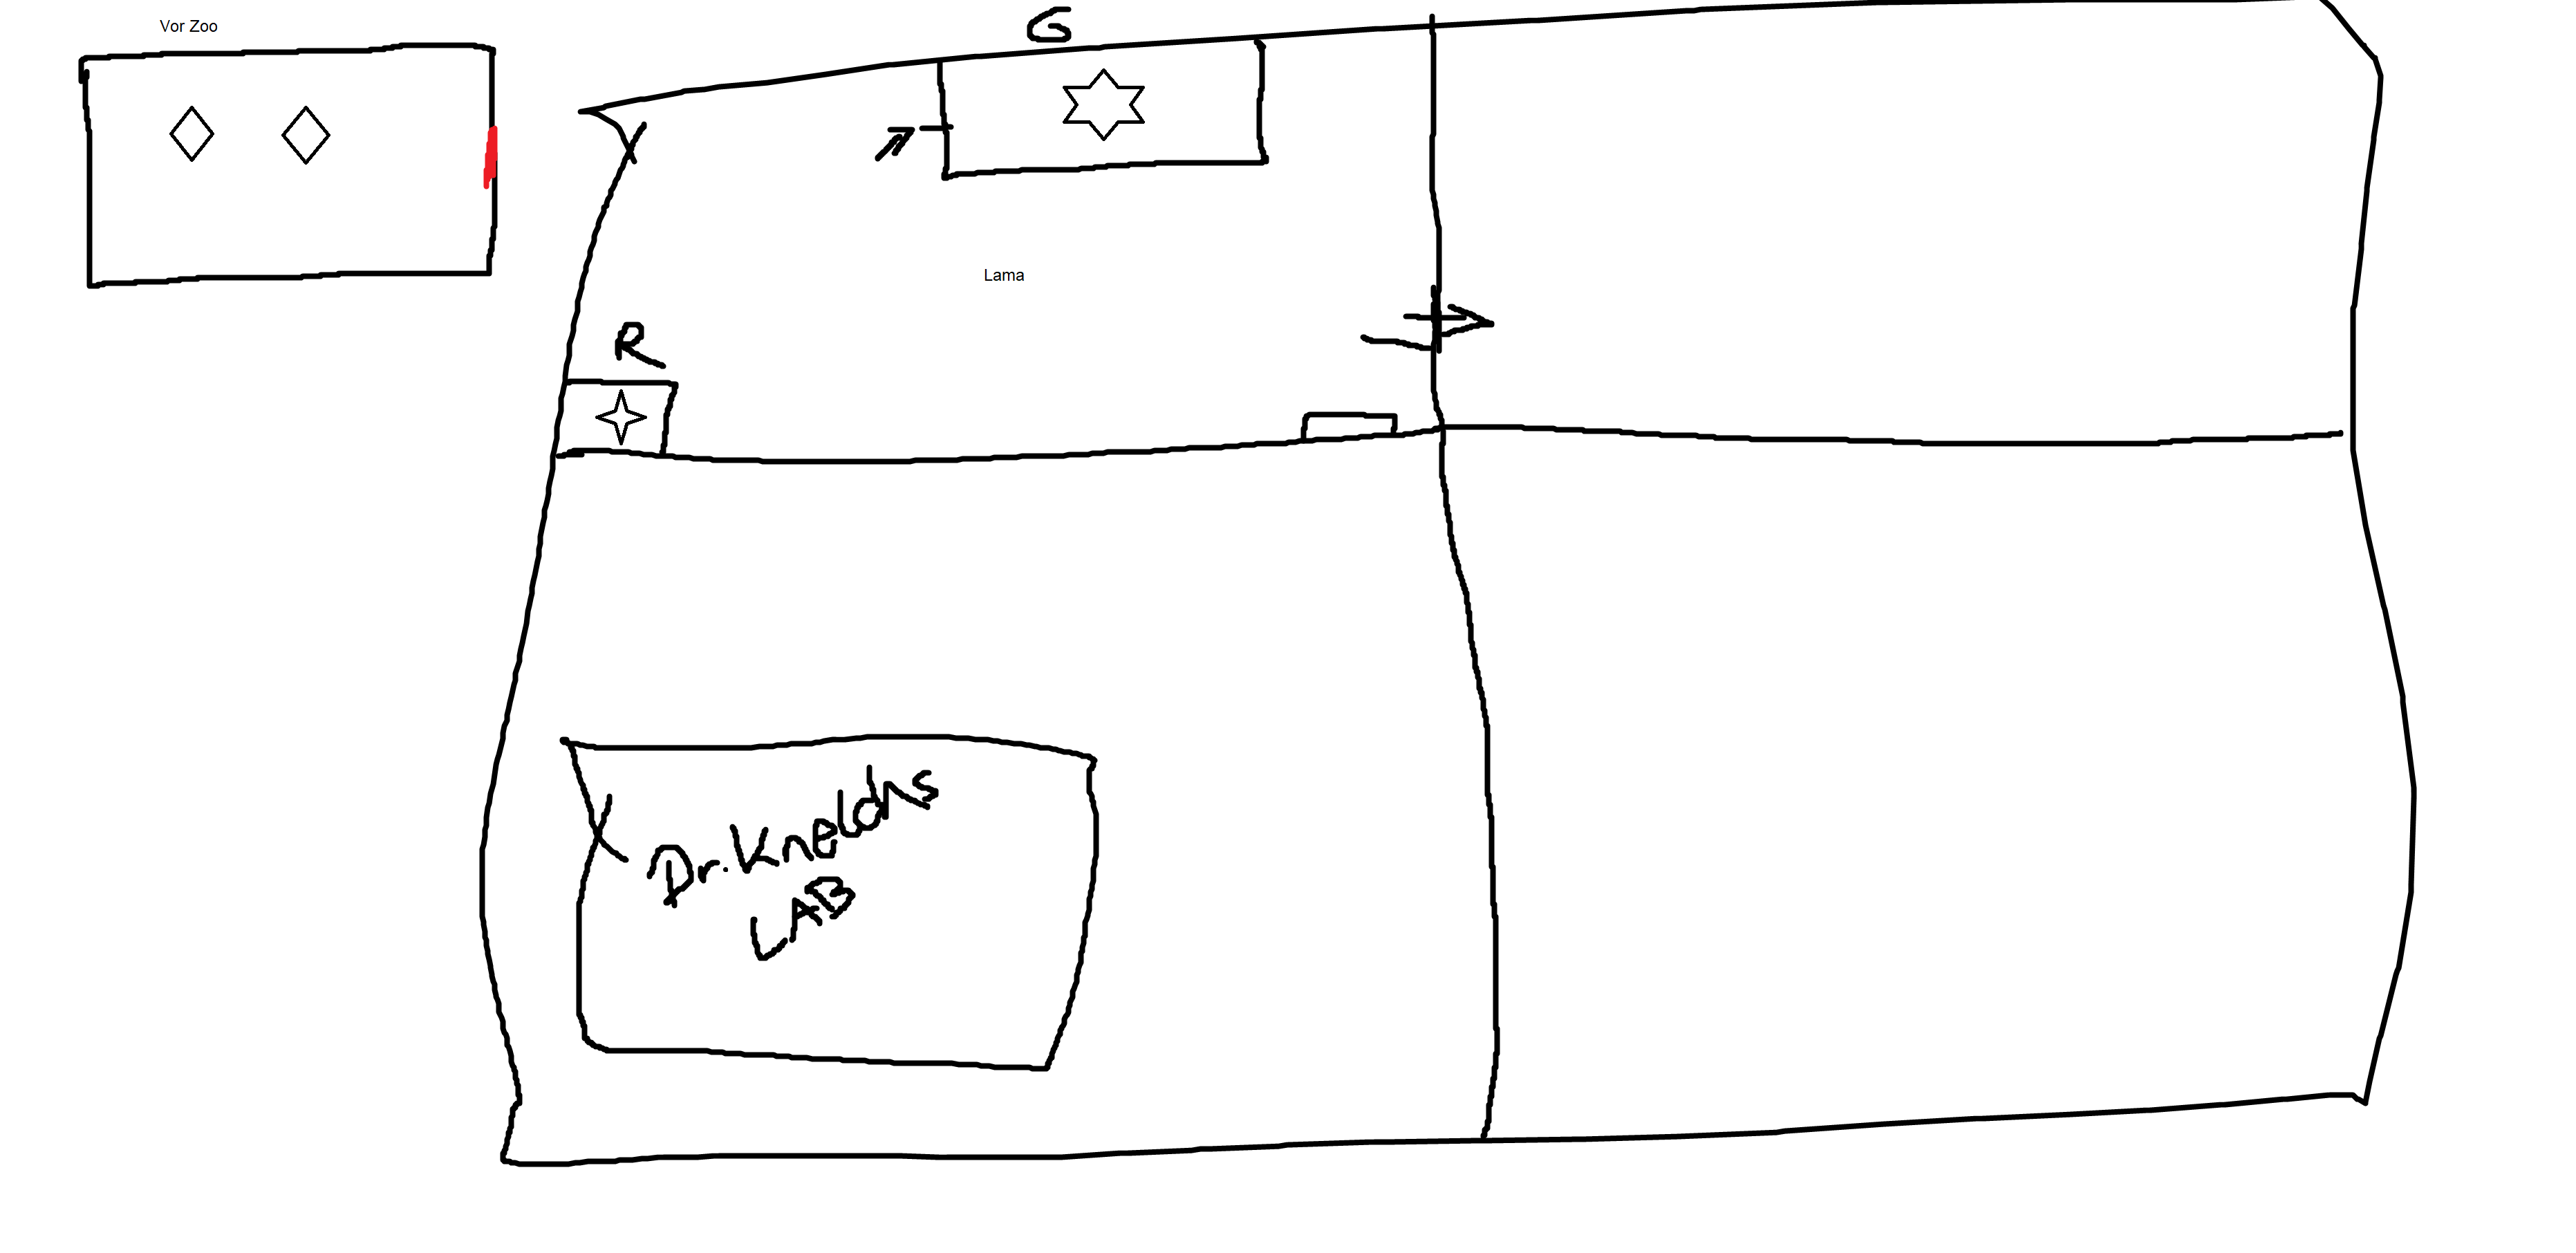 Vor Zoo
G
Lama
R
Dr. Kneldns
LAB